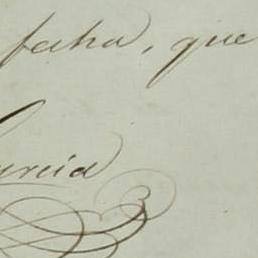 fecha, que
urcia